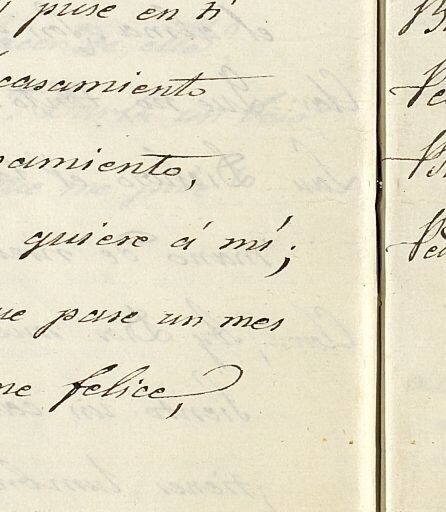 puse en ti
casamiento
samiento,
quiere á mi;
ue pase un mes
me felice,